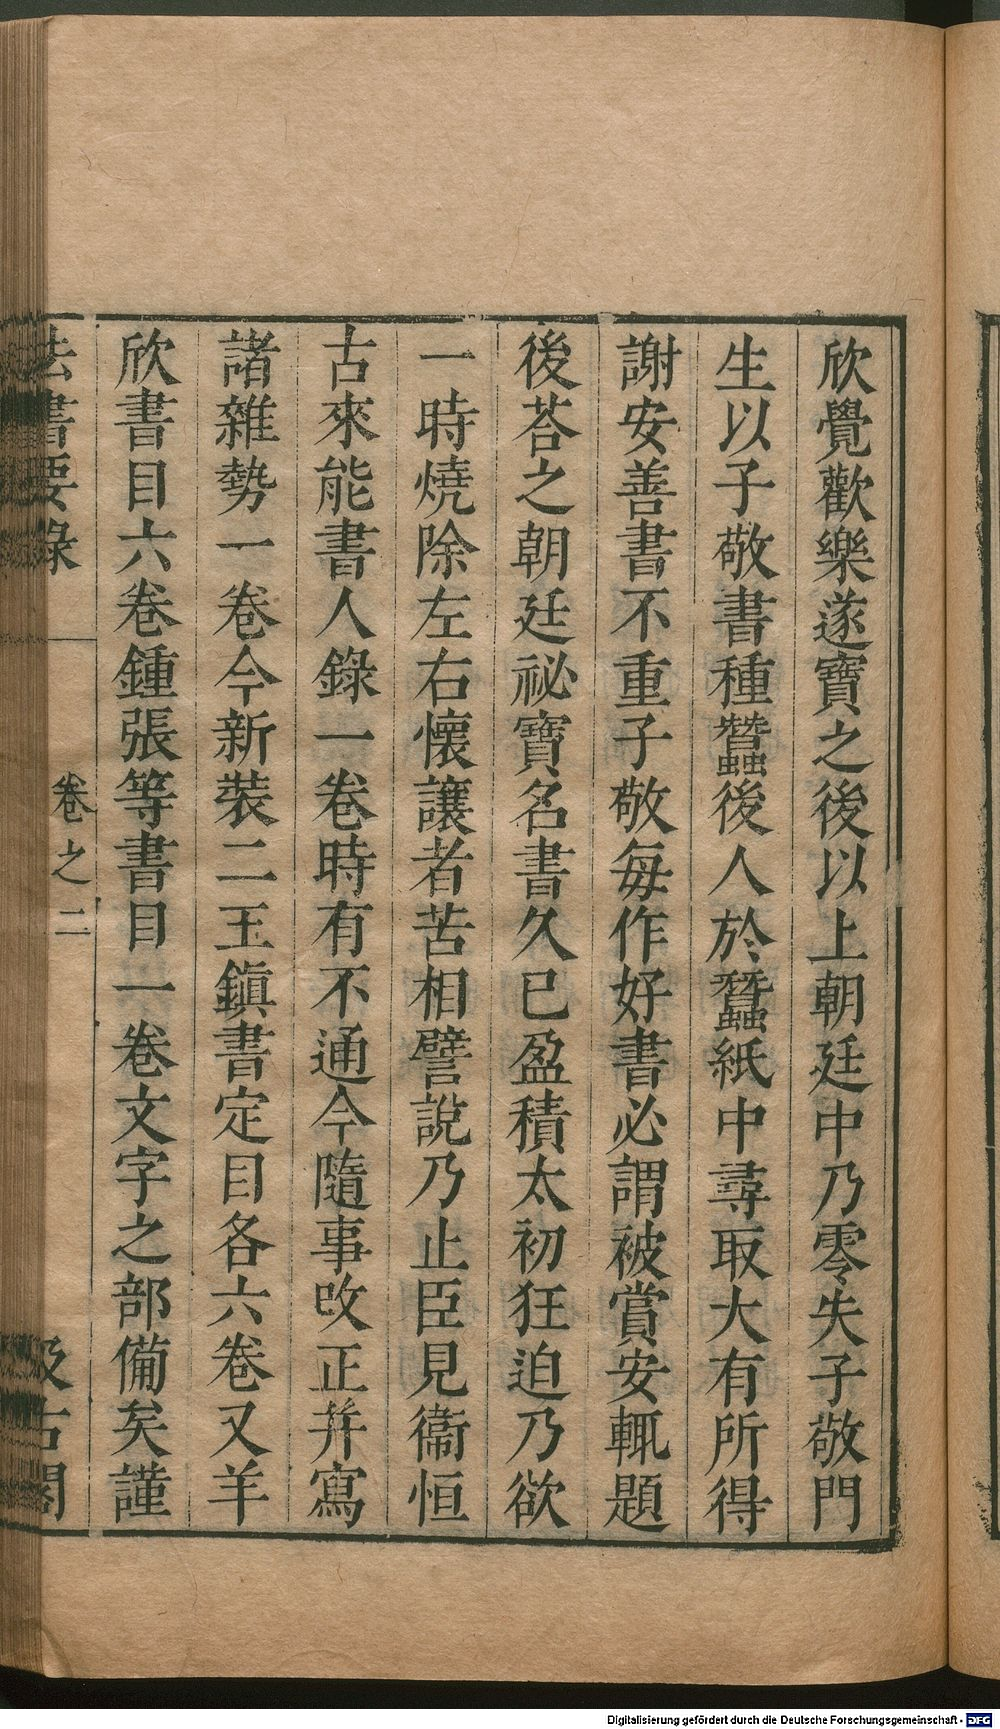 欣覺歡樂遂寶之後以上朝廷中乃零失子敬門
生以子敬書種蠶後人於蠶紙中尋取大有所得
謝安善書不重子敬每作好書必謂被賞安輒題
後荅之朝廷祕寶名書久已盈積太初狂迫乃欲
一時燒除左右懷讓者苦相譬說乃止臣見衞恒
古來能書人錄一卷時有不通今隨事改正并寫
諸雜勢一卷今新裝二王鎮書定目各六卷又羊
欣書目六卷鍾張等書目一卷文字之部備矣謹
法書要錄 卷之二 汲古閣
Digitalisierung gefördert durch die Deutsche Forschungsgemeinschaft - DFG